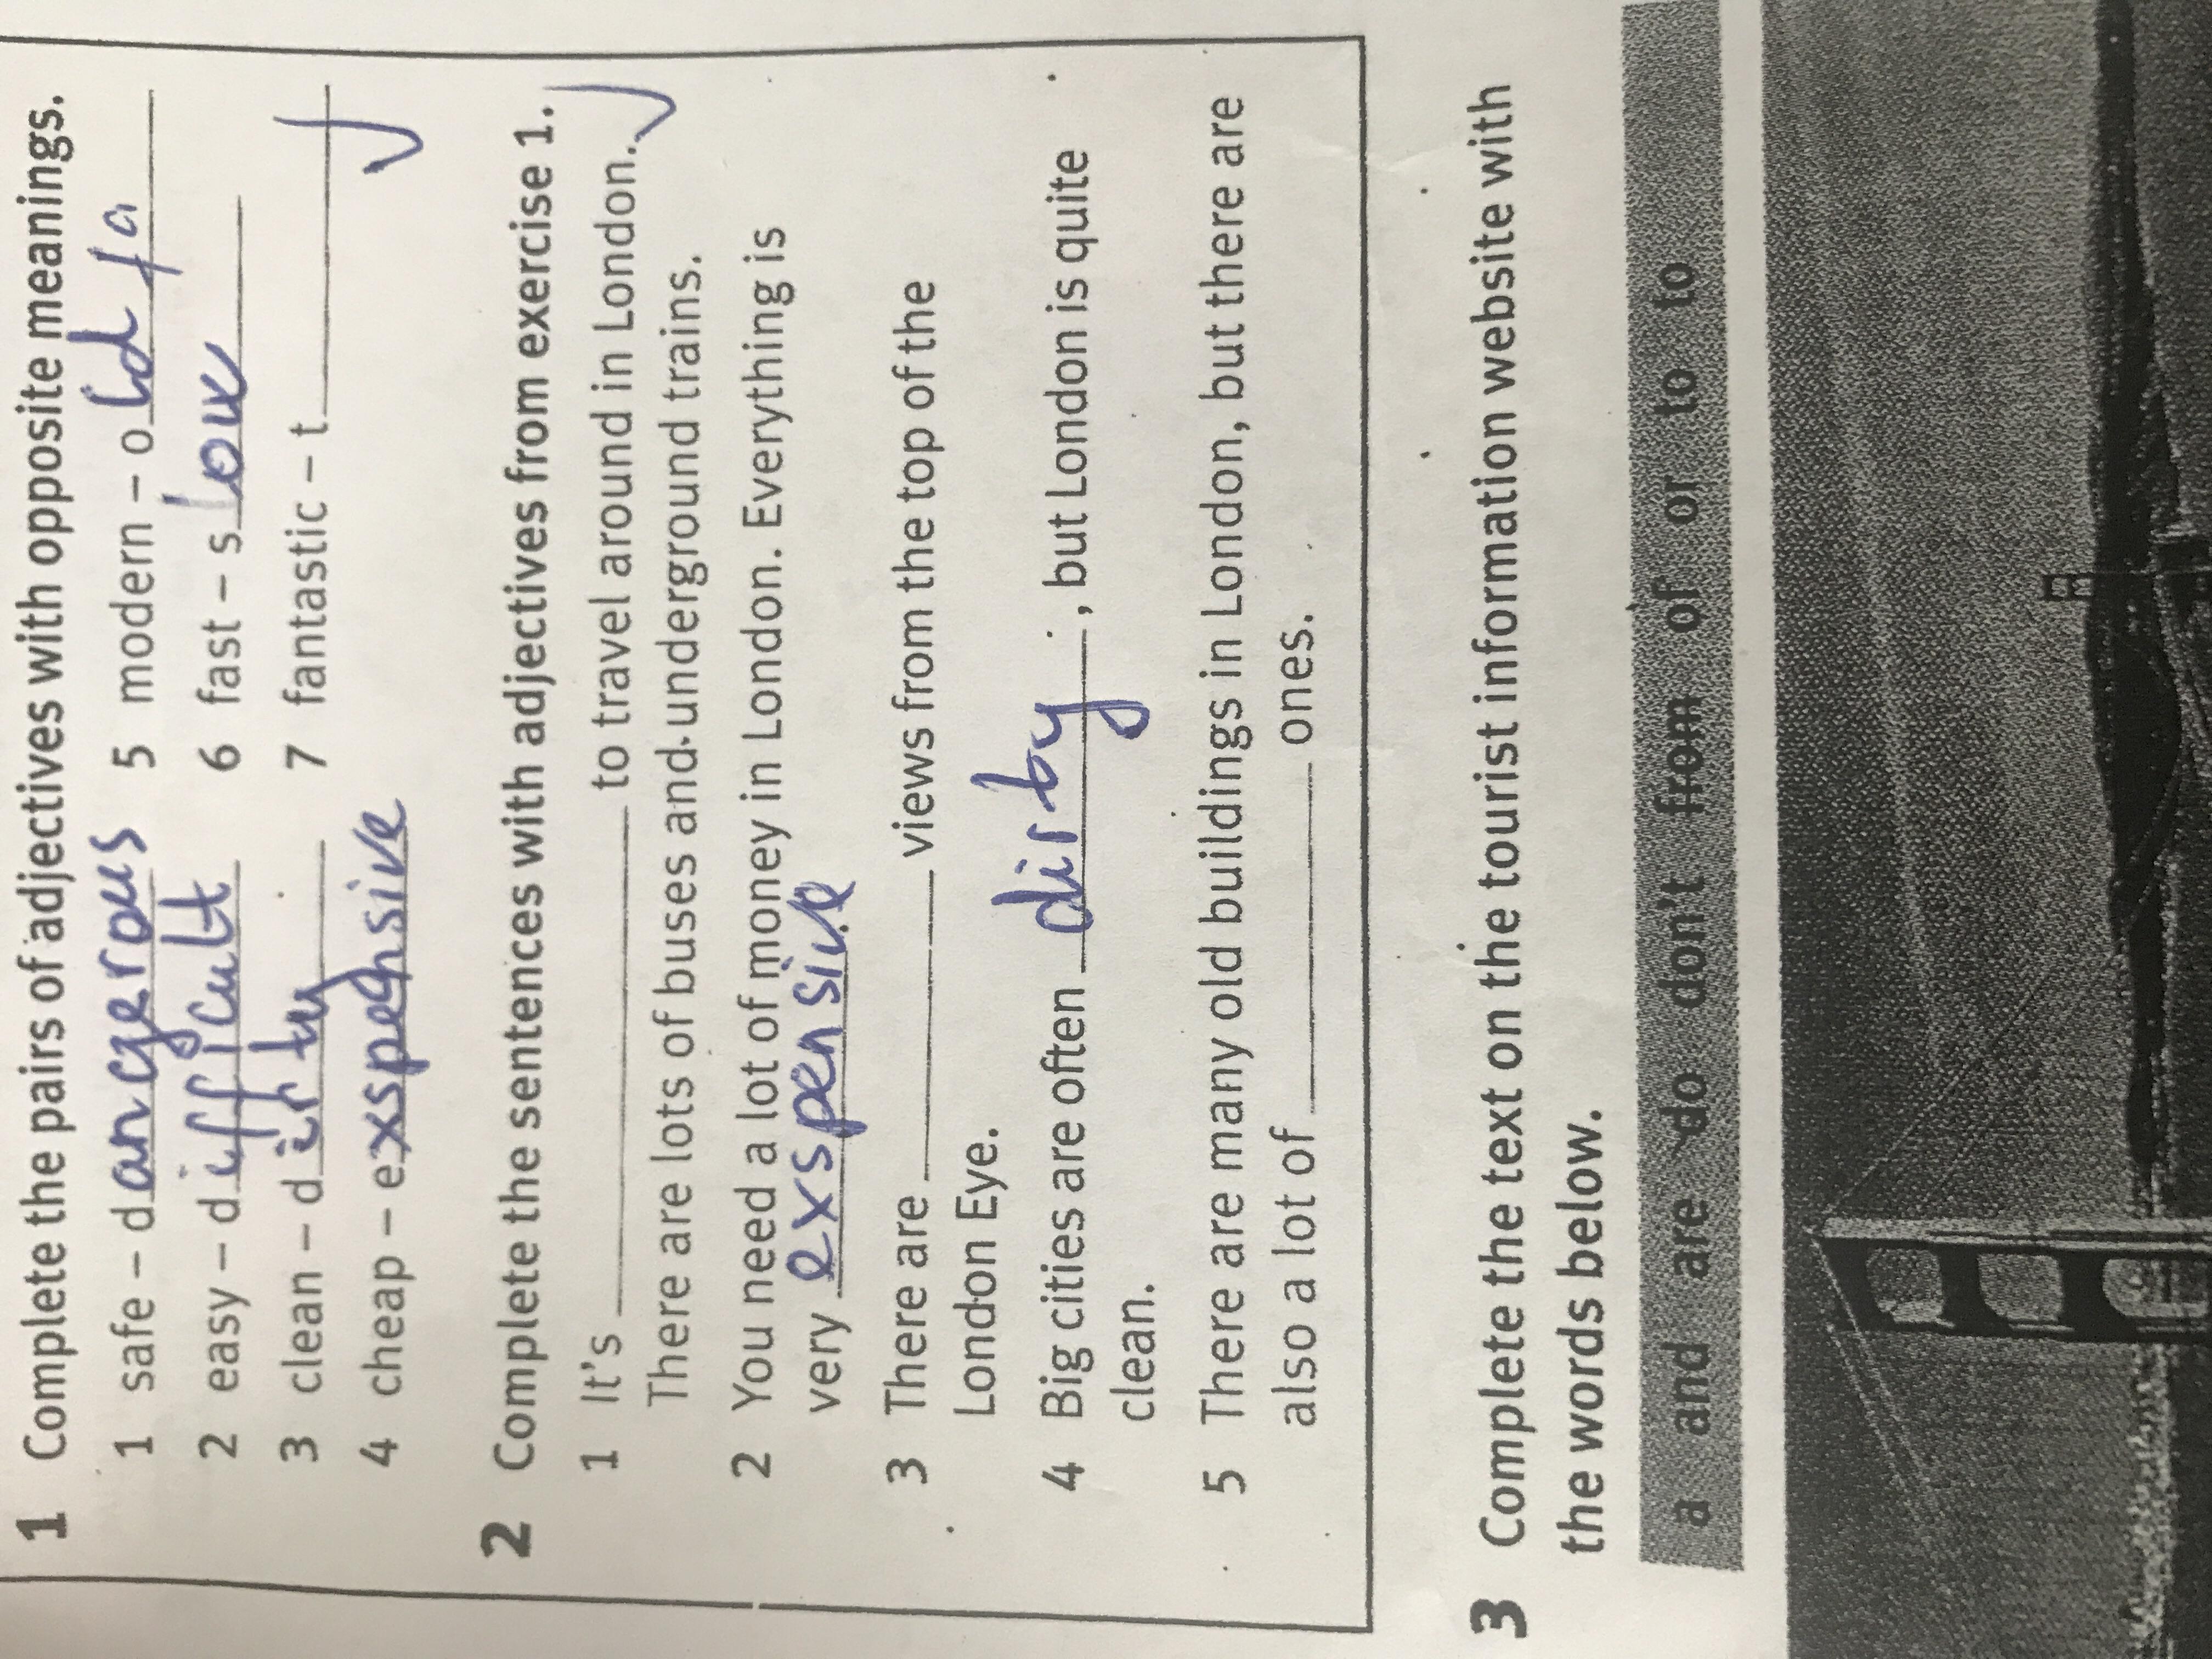 1 Complete the pairs of adjectives with opposite meanings.
1 safe – dangerous 5 modern – old fa
2 easy – difficult 6 fast – slow
3 clean – dirty 7 fantastic – t
4 cheap – exspensive
2 Complete the sentences with adjectives from exercise 1.
1 It's ____ to travel around in London.
There are lots of buses and underground trains.
2 You need a lot of money in London. Everything is
very exspensive
3 There are ____ views from the top of the
London Eye.
4 Big cities are often dirby, but London is quite
clean.
5 There are many old buildings in London, but there are
also a lot of ____ ones.
3 Complete the text on the tourist information website with
the words below.
a and are do don't from of or to to